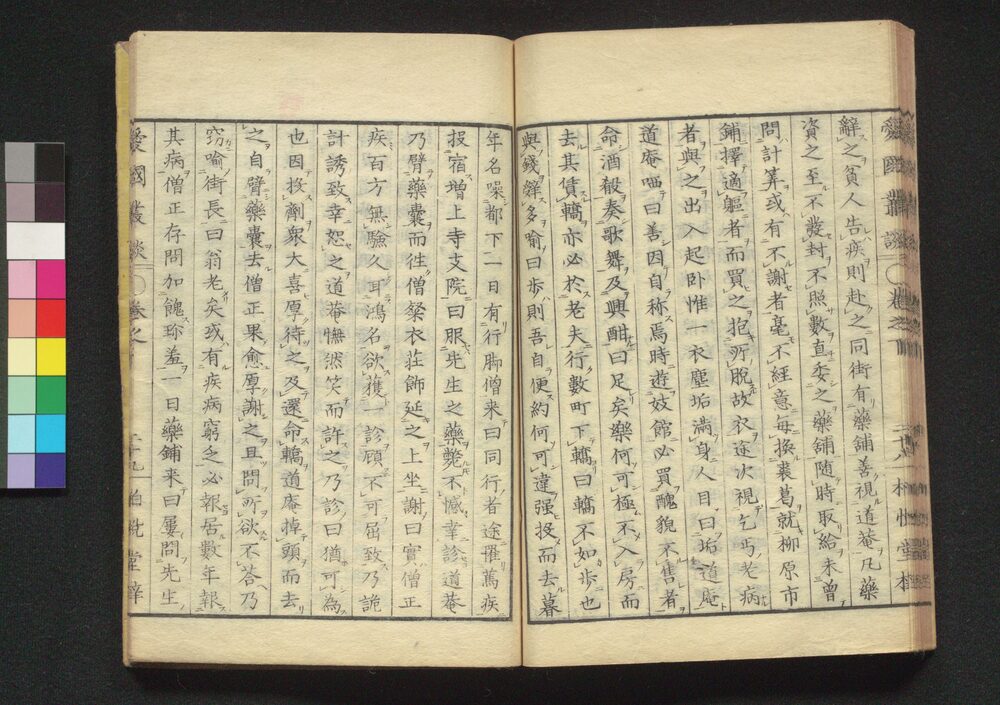 辭之貧人告疾則赴之同街有藥舖善視道菴凡藥
資之至不發封不照數直委之藥舖随時取給未曾
問計筭或有不謝者毫不經意毎換裘葛就柳原市
鋪擇適軀者而買之抱所脫故衣途次視乞丐老病
者與之出入起卧惟一衣塵垢滿身人目曰垢道庵
道庵哂曰善因自称焉時遊妓館必買醜貌不售者
命酒殽奏歌舞及興酣曰足矣樂何可極不入房而
去其賃轎亦必於老夫行數町下轎曰轎不如歩也
與錢辭多喻曰歩則吾自便約何可違强投而去暮
年名噪都下一日有行脚僧来曰同行者途罹萬疾
投宿増上寺支院曰服先生之藥斃不憾幸診道菴
乃臂藥囊而往僧粲衣荘飾延之上坐謝曰實僧正
疾百方無驗久耳鴻名欲獲一診顧不可屈致乃詭
計誘致幸恕之道菴憮然笑而許之乃診曰猶可為
也因投劑衆大喜厚待之及還命轎道庵掉頭而去
之自臂藥囊去僧正果愈厚謝之且問所欲不荅乃
窃喻街長曰翁老矣或有疾病窮乏必報居數年報
其病僧正存問加餽珍羞一日藥鋪来曰屢問先生
愛國叢談
卷之